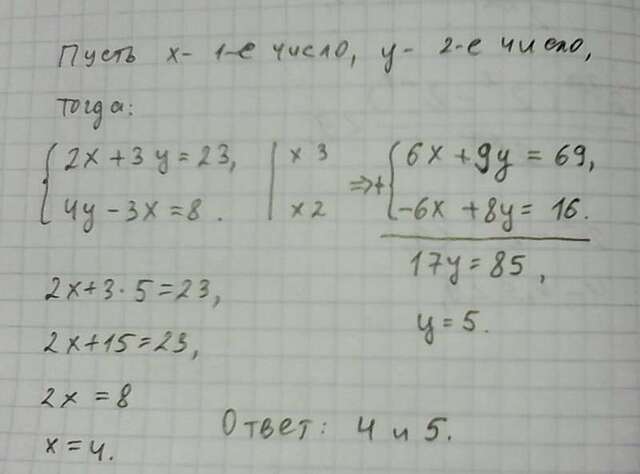 Пусть x- 1-е число, y- 2-е число,
тогда:
2x + 3y = 23, | x 3 => + 6x + 9y = 69,
4y - 3x = 8. | x 2 -6x + 8y = 16.
17y = 85,
y = 5.
2x + 3 · 5 = 23,
2x + 15 = 23,
2x = 8
x = 4.
Ответ: 4 и 5.